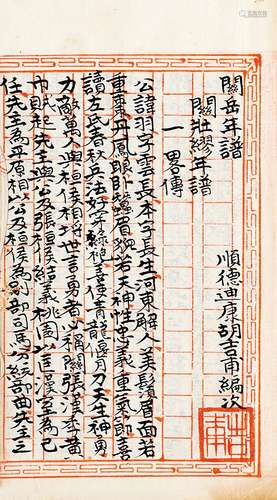 關岳年譜
順德迪康胡吉甫編次
關壯繆年譜
一 畧傳
公諱羽字雲長本字長生河東解人美鬚髯面若
重棗丹鳳眼卧蠶眉貌若天神性忠義重氣節喜
讀左氏春秋兵法好穿綠袍善使青龍偃月刀天生神勇
力敵萬人與桓侯相埒世言勇者必稱關張漢末黃
巾賊起先主與公及張桓侯結義桃園以匡漢室為己
任先主為平原相以公及桓侯為別部司馬分統部曲先主